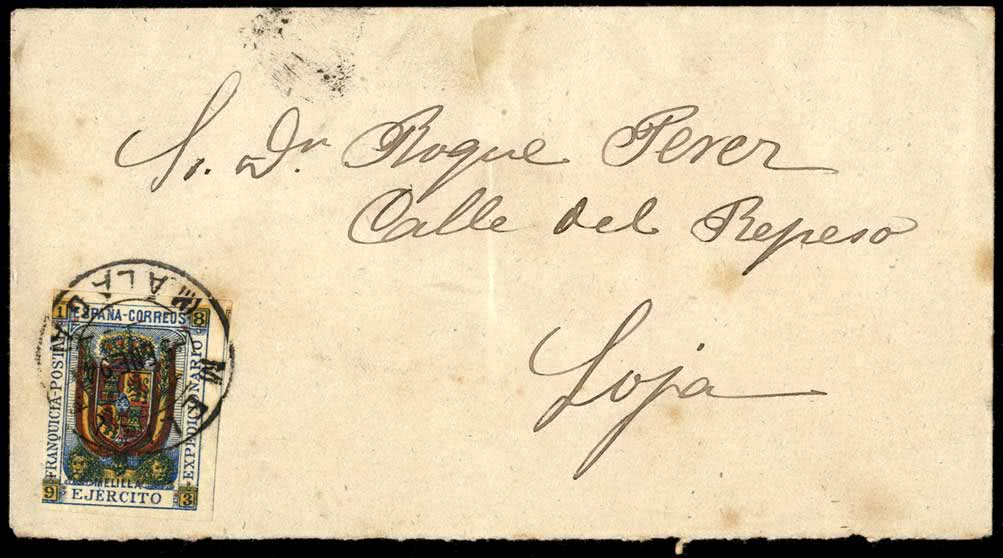 Sr. Dn Roque Perez
Calle del Repeso
Loja
1 ESPAÑA-CORREOS 8
FRANQUICIA-POSTAL
EXPEDICIONARIO
MELILLA
9 EJÉRCITO 3